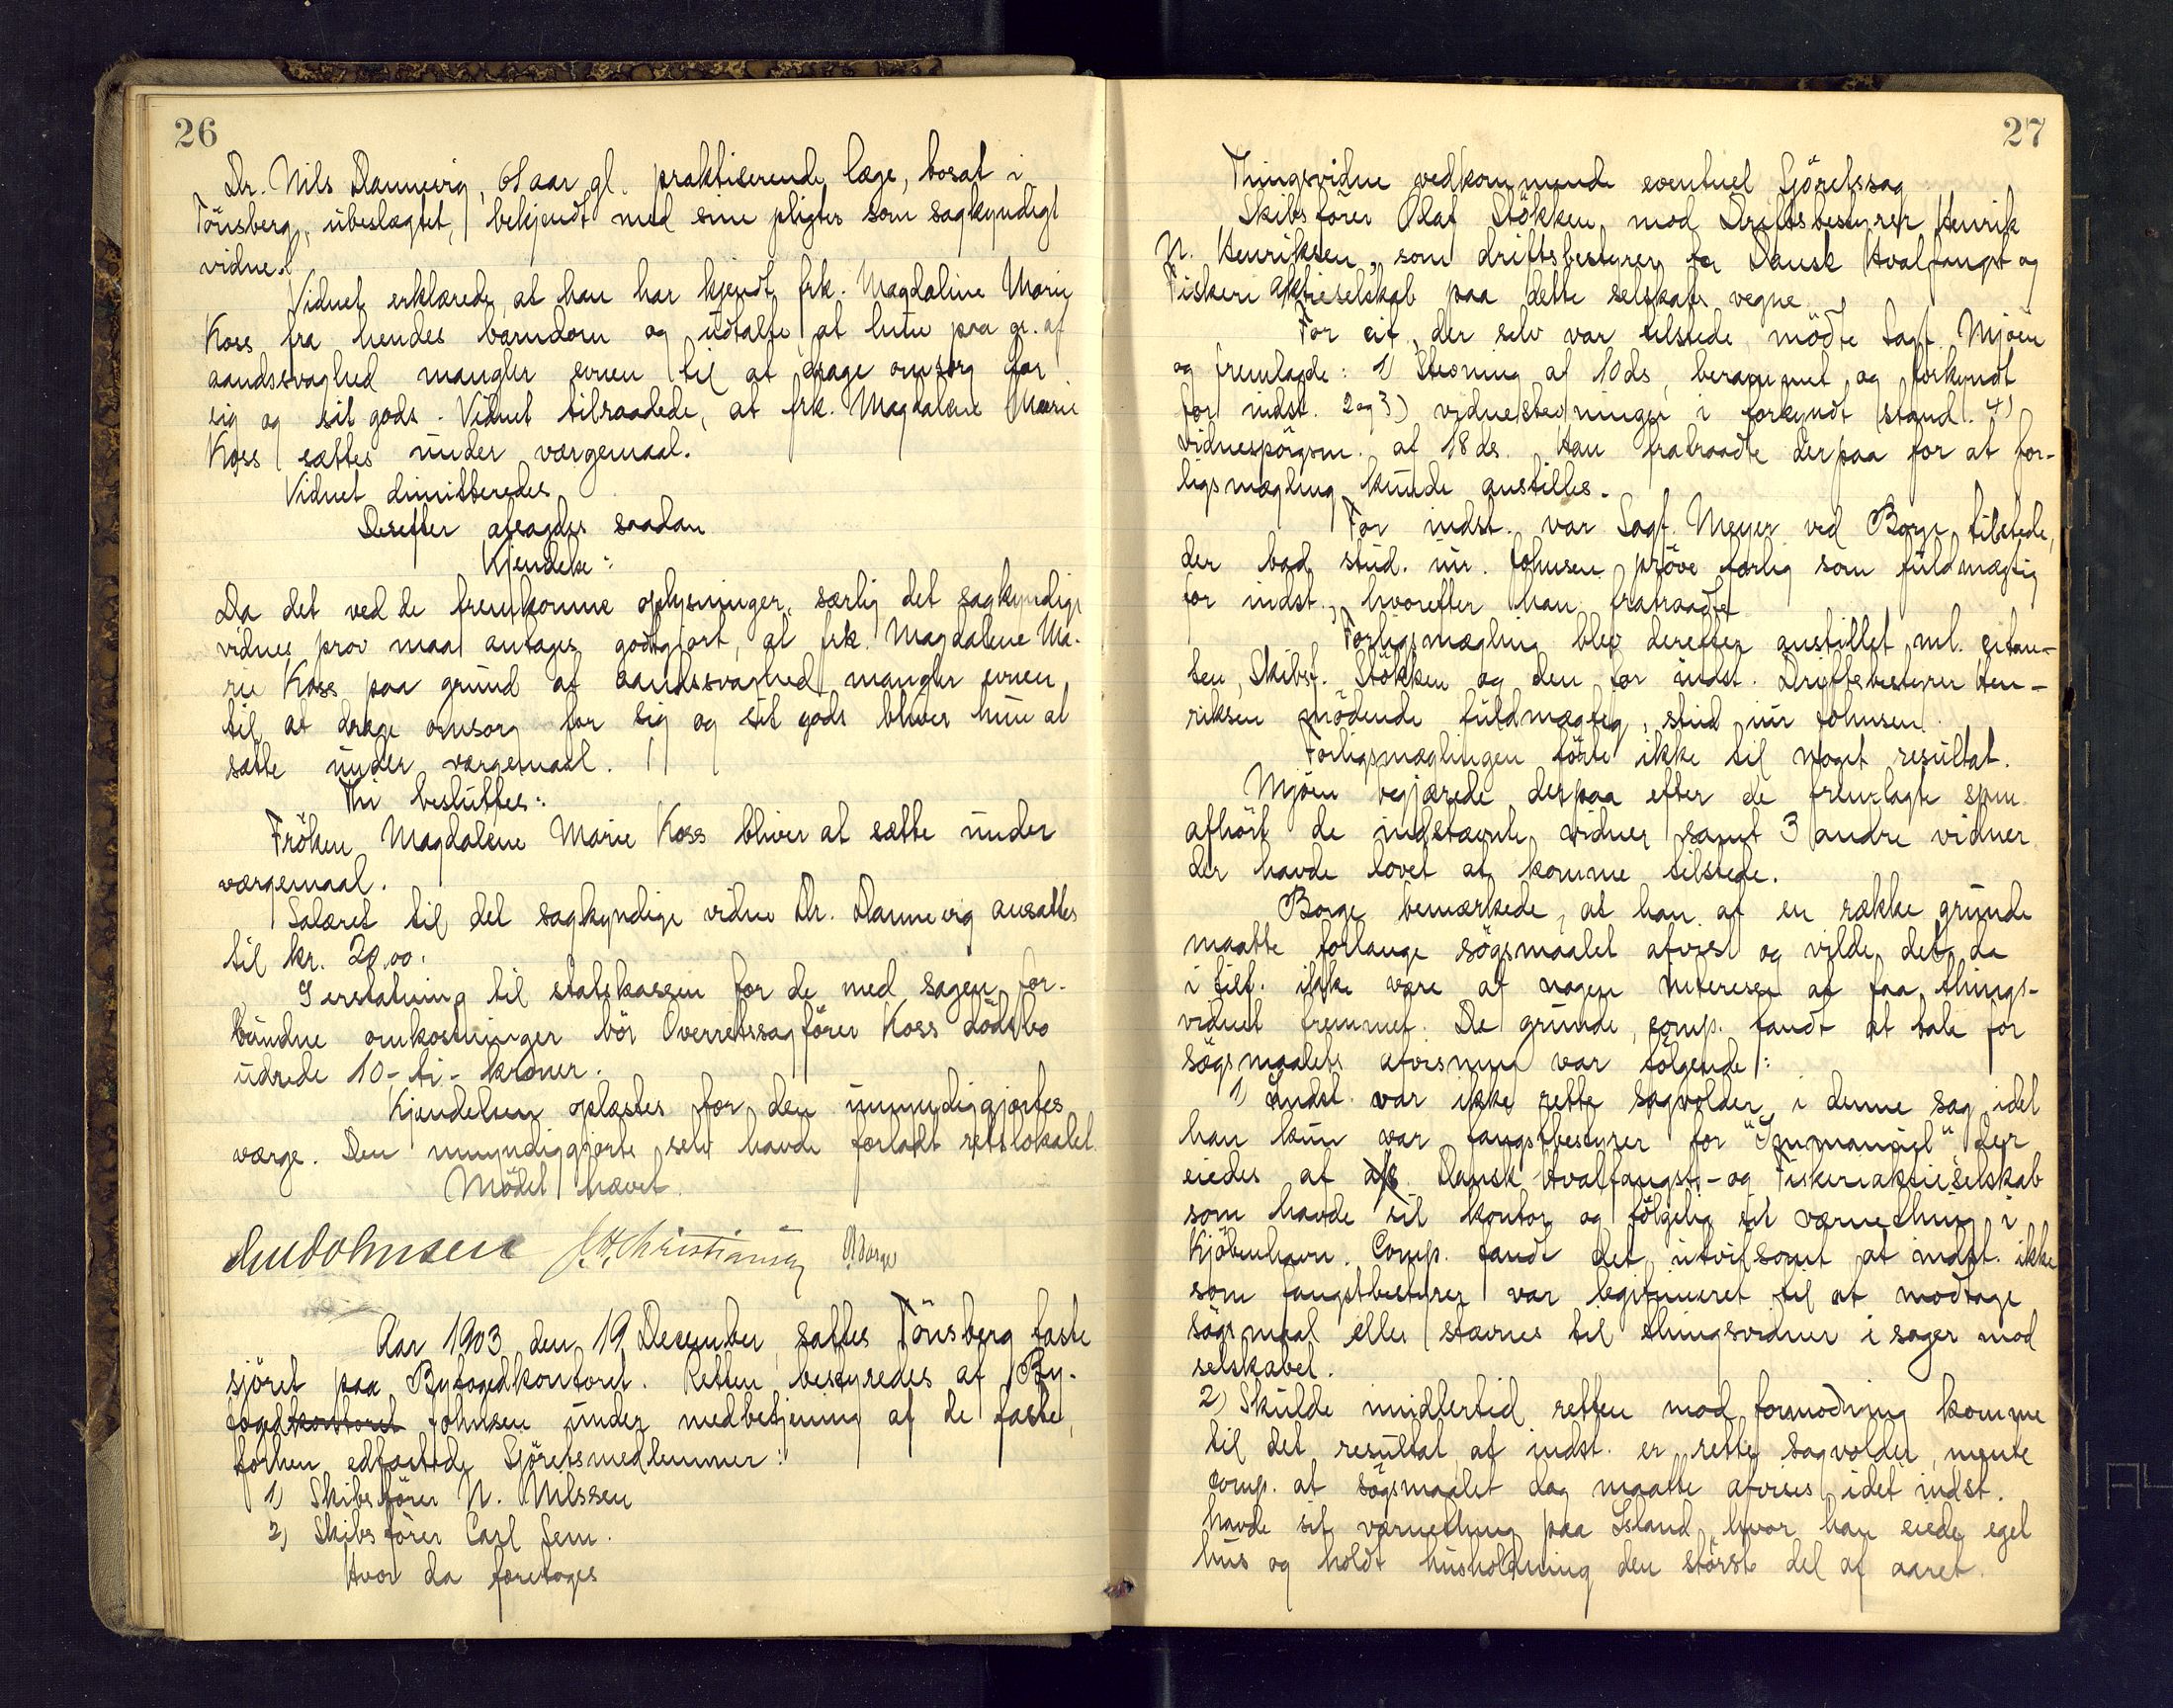 26
Dr. Nils Dannevig, 61 aar gl. praktiserende læge, bosat i
Tönsberg, ubeslægtet, bekjendt med sine pligter som sagkyndigt
vidne.
Vidnet erklærede, at han har kjendt frk. Magdaline Marie
Koss fra hendes barndom og udtalte at hun paa gr. af
aandssvaghed mangler evnen til at drage omsorg for
sig og sit gods. Vidnet tilraadede, at frk. Magdalene Marie
Koss sættes under værgemaal.
Vidnet dimitteredes
Derefter afsagdes saadan
Kjendelse:
Da det ved de fremkomne oplysninger, særlig det sagkyndige
vidnes prov maa antages godtgjort, at frk. Magdalene Ma-
rie Koss paa grund af aandssvaghed mangler evnen
til at drage omsorg for sig og sit gods bliver hun at
sætte under værgemaal.
Thi besluttes:
Fröken Magdalene Marie Koss bliver at sætte under
værgemaal.
Salæret til det sagkyndige vidne Dr. Dannevig ansattes
til kr. 20,00.
I erstatning til statskassen for de med sagen for-
bundne omkostninger bör Overretssagförer Koss dödsbo
udrede 10 - ti - kroner.
Kjendelsen oplæstes for den umyndiggjortes
værge. Den umyndiggjorte selv havde forladt retslokalet.
Mödet hævet.
Chr Johnsen J. H. Christiansen Borge
Aar 1903 den 19 December sattes Tönsberg faste
sjöret paa Byfogedkontoret. Retten bestyredes af By-
fogedkontoret Johnsen under medbetjening af de faste,
forhen edfæstede Sjöretsmedlemmer:
1) Skibsförer N. Nilssen
2) Skibsförer Carl Sem.
Hvor da foretoges
27
Thingsvidne vedkommende eventuel Sjöretssag
Skibsförer Olaf Stökken mod Driftsbestyrer Henrik
N. Henriksen, som driftsbestyrer for Dansk Hvalfangst og
Fiskeri Aktieselskab paa dette selskabs vegne.
For cit., der selv var tilstede mödte Sagf. Mjöen
og fremlagde: 1) Stevning af 10 ds, berammet og forkyndt
for indst. 2 og 3) vidnestevninger i forkyndt stand. 4)
vidnespörgsm. af 18 ds. Han fratraadte derpaa for at for-
ligsmægling kunde anstilles.
For indst. var Sagf. Meyer ved Borge tilstede,
der bad stud. jur. Johnsen pröve forlig som fuldmægtig
for indst., hvorefter han fratraadte.
Forligsmægling blev derefter anstillet ml. citan-
ten, Skibsf. Stökken og den for indst. Driftsbestyrer Hen-
riksen mödende fuldmægtig, stud jur Johnsen.
Forligsmæglingen förte ikke til noget resultat.
Mjöen begjærede derpaa efter de fremlagte spm.
afhört de indstævnte vidner samt 3 andre vidner
der havde lovet at komme tilstede.
Borge bemærkede, at han af en række grunde
maatte forlange sögsmaalet afvist og vilde det da
i tilf. ikke være af nogen interesse at faa things-
vidnet fremmet. De grunde, comp. fandt at tale for
sögsmaalets afvisning var fölgende:
1) Indst. var ikke rette sagvolder i denne sag idet
han kun var fangstbestyrer for "Immanuel" der
eiedes af a/s Dansk Hvalfangst- og Fiskeriaktieselskab
som havde sit kontor og fölgelig sit værnething i
Kjöbenhavn. Comp. fandt det utvilsomt at indst. ikke
som fangstbestyrer var legitimeret til at modtage
sögsmaal eller stævnes til thingsvidner i sager mod
selskabet.
2) Skulde imidlertid retten mod formodning komme
til det resultat at indst. er rette sagvolder, mente
comp. at sögsmaalet dog maatte afvises idet indst.
havde sit værnething paa Island, hvor han eiede eget
hus og holdt husholdning den störste del af aaret.